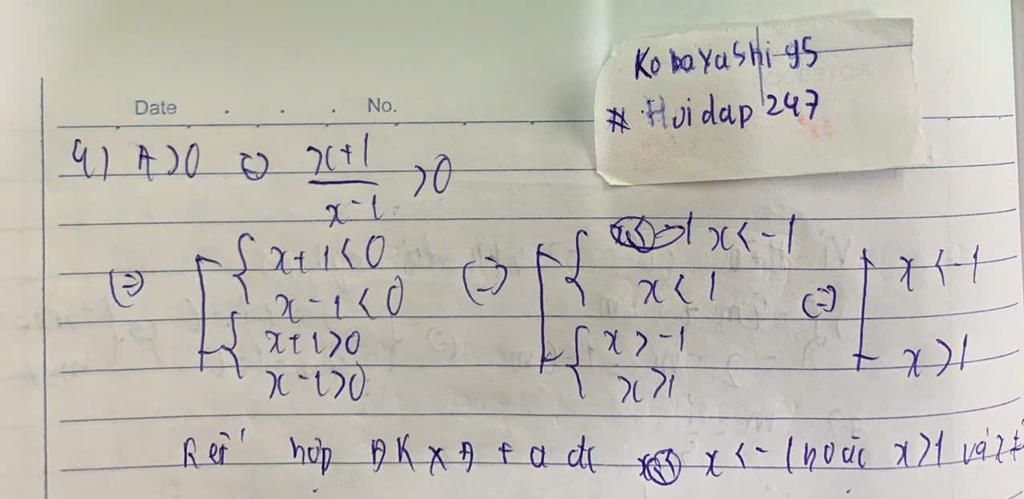 Kobayashi95
# Hoidap247
Date . . . No.
4) A>0 ⇔ x+1/x-1 >0
⇔ [{x+1<0 ⇔ [{x<-1 ⇔ [x<-1
x-1<0 x<1
{x+1>0 {x>-1 x>1
x-1>0 x>1
Kết hợp ĐKXĐ ta đc x<-1 hoặc x>1 và